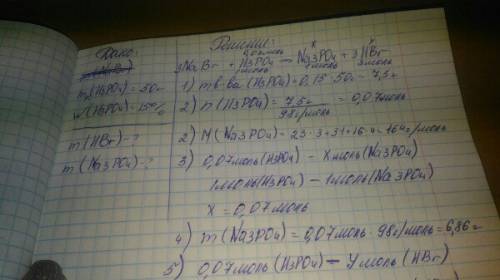 Дано:
m(H3PO4)=50г
w(H3PO4)=15%
m(HBr)-?
m(Na3PO4)-?
Решение:
0,07моль X Y
3NaBr + H3PO4 → Na3PO4 + 3HBr
1моль 1моль 3моль
1) m в-ва (H3PO4)=0,15·50г=7,5г
2) n(H3PO4)= 7,5г / 98г/моль = 0,07моль
2) M(Na3PO4)=23·3+31+16·4=164г/моль
3) 0,07моль(H3PO4) – X моль(Na3PO4)
1моль(H3PO4) – 1моль(Na3PO4)
X = 0,07моль
4) m(Na3PO4)=0,07моль·98г/моль=6,86г
5) 0,07моль(H3PO4) – Y моль(HBr)